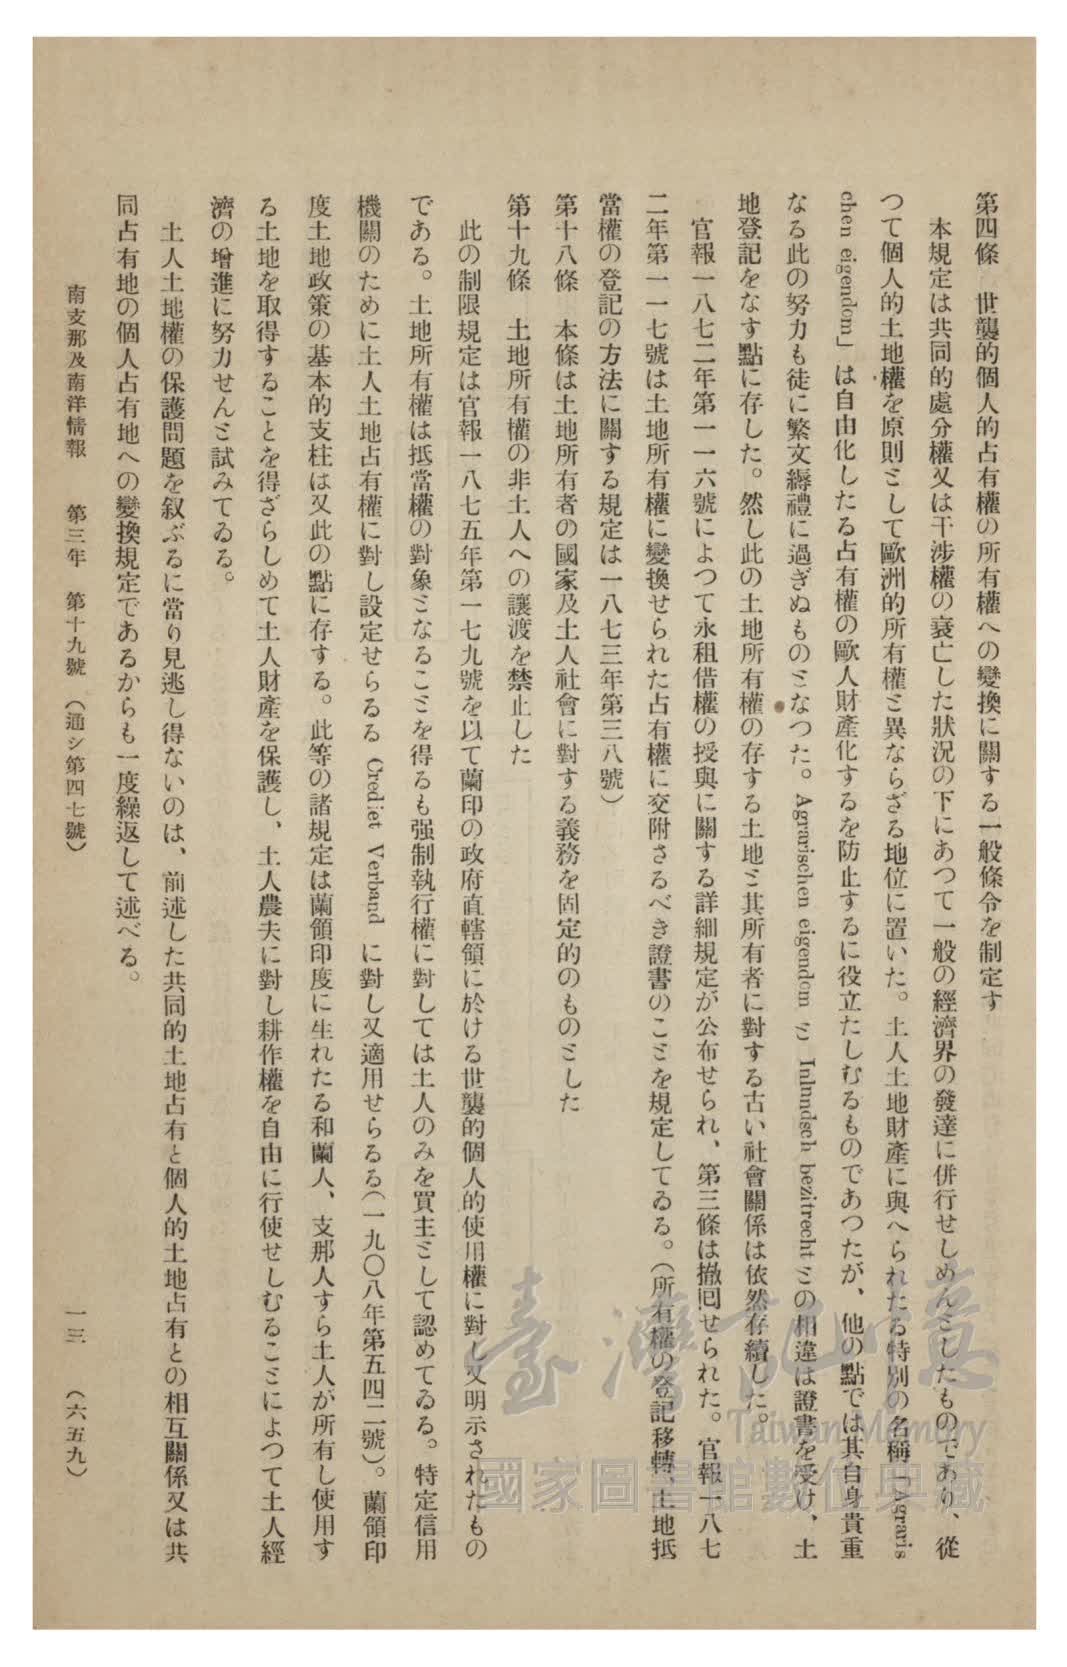 第四條　世襲的個人的占有權の所有權への變換に關する一般條令を制定す
本規定は共同的處分權又は干涉權の衰亡した狀況の下にあつて一般の經濟界の發達に併行せしめんとしたものであり、從
つて個人的土地權を原則として歐洲的所有權と異ならざる地位に置いた。土人土地財產に與へられたる特別の名稱「Agraris
chen eigendom」は自由化したる占有權の歐人財產化するを防止するに役立たしむるものであつたが、他の點では其自身貴重
なる此の努力も徒に繁文縟禮に過ぎぬものとなつた。Agrarischen eigendom と Inlnndsch bezitrecht との相違は證書を受け、土
地登記をなす點に存した。然し此の土地所有權の存する土地と其所有者に對する古い社會關係は依然存續した。
官報一八七二年第一一六號によつて永租借權の授與に關する詳細規定が公布せられ、第三條は撤囘せられた。官報一八七
二年第一一七號は土地所有權に變換せられた占有權に交附さるべき證書のことを規定してゐる。（所有權の登記移轉、土地抵
當權の登記の方法に關する規定は一八七三年第三八號）
第十八條　本條は土地所有者の國家及土人社會に對する義務を固定的のものとした
第十九條　土地所有權の非土人への讓渡を禁止した
此の制限規定は官報一八七五年第一七九號を以て蘭印の政府直轄領に於ける世襲的個人的使用權に對し又明示されたもの
である。土地所有權は抵當權の對象となることを得るも强制執行權に對しては土人のみを買主として認めてゐる。特定信用
機關のために土人土地占有權に對し設定せらるる Crediet Verband に對し又適用せらるる（一九〇八年第五四二號）。蘭領印
度土地政策の基本的支柱は又此の點に存する。此等の諸規定は蘭領印度に生れたる和蘭人、支那人すら土人が所有し使用す
る土地を取得することを得ざらしめて土人財產を保護し、土人農夫に對し耕作權を自由に行使せしむることによつて土人經
濟の增進に努力せんと試みてゐる。
土人土地權の保護問題を叙ぶるに當り見逃し得ないのは、前述した共同的土地占有と個人的土地占有との相互關係又は共
同占有地の個人占有地への變換規定であるからも一度繰返して述べる。
南支那及南洋情報　第三年　第十九號（通シ第四七號）　一三　（六五九）
臺灣記憶
Taiwan Memory
國家圖書館數位典藏